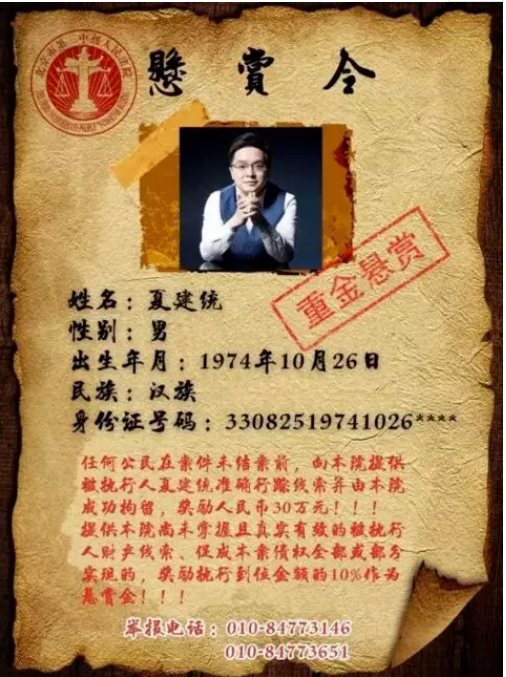 懸賞令
北京市第一中级人民法院
重金悬赏
姓名：夏建统
性别：男
出生年月：1974年10月26日
民族：汉族
身份证号码：33082519741026****
任何公民在案件未结案前，向本院提供
被执行人夏建统准确行踪线索并由本院
成功拘留，奖励人民币30万元！！！
提供本院尚未掌握且真实有效的被执行
人财产线索、促成本案债权全部或部分
实现的，奖励执行到位金额的10%作为
悬赏金！！！
举报电话：010-84773146
010-84773651